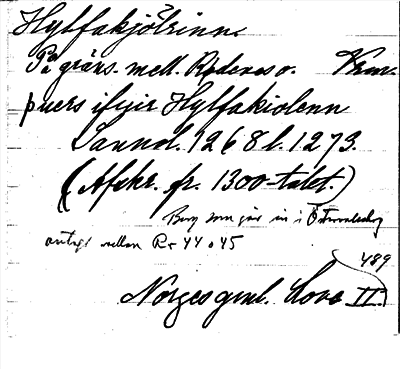 Hylfakjölrinn.
På gräns. mell. Rødenes o. 
þuers ifyir Hylfakiolenn
Sannol. 1268 l. 1273.
(Afskr. fr. 1300-talet.)
Berg som går in i Östervallskog
antagl mellan R 44 o 45
489
Norges gml. Love II.